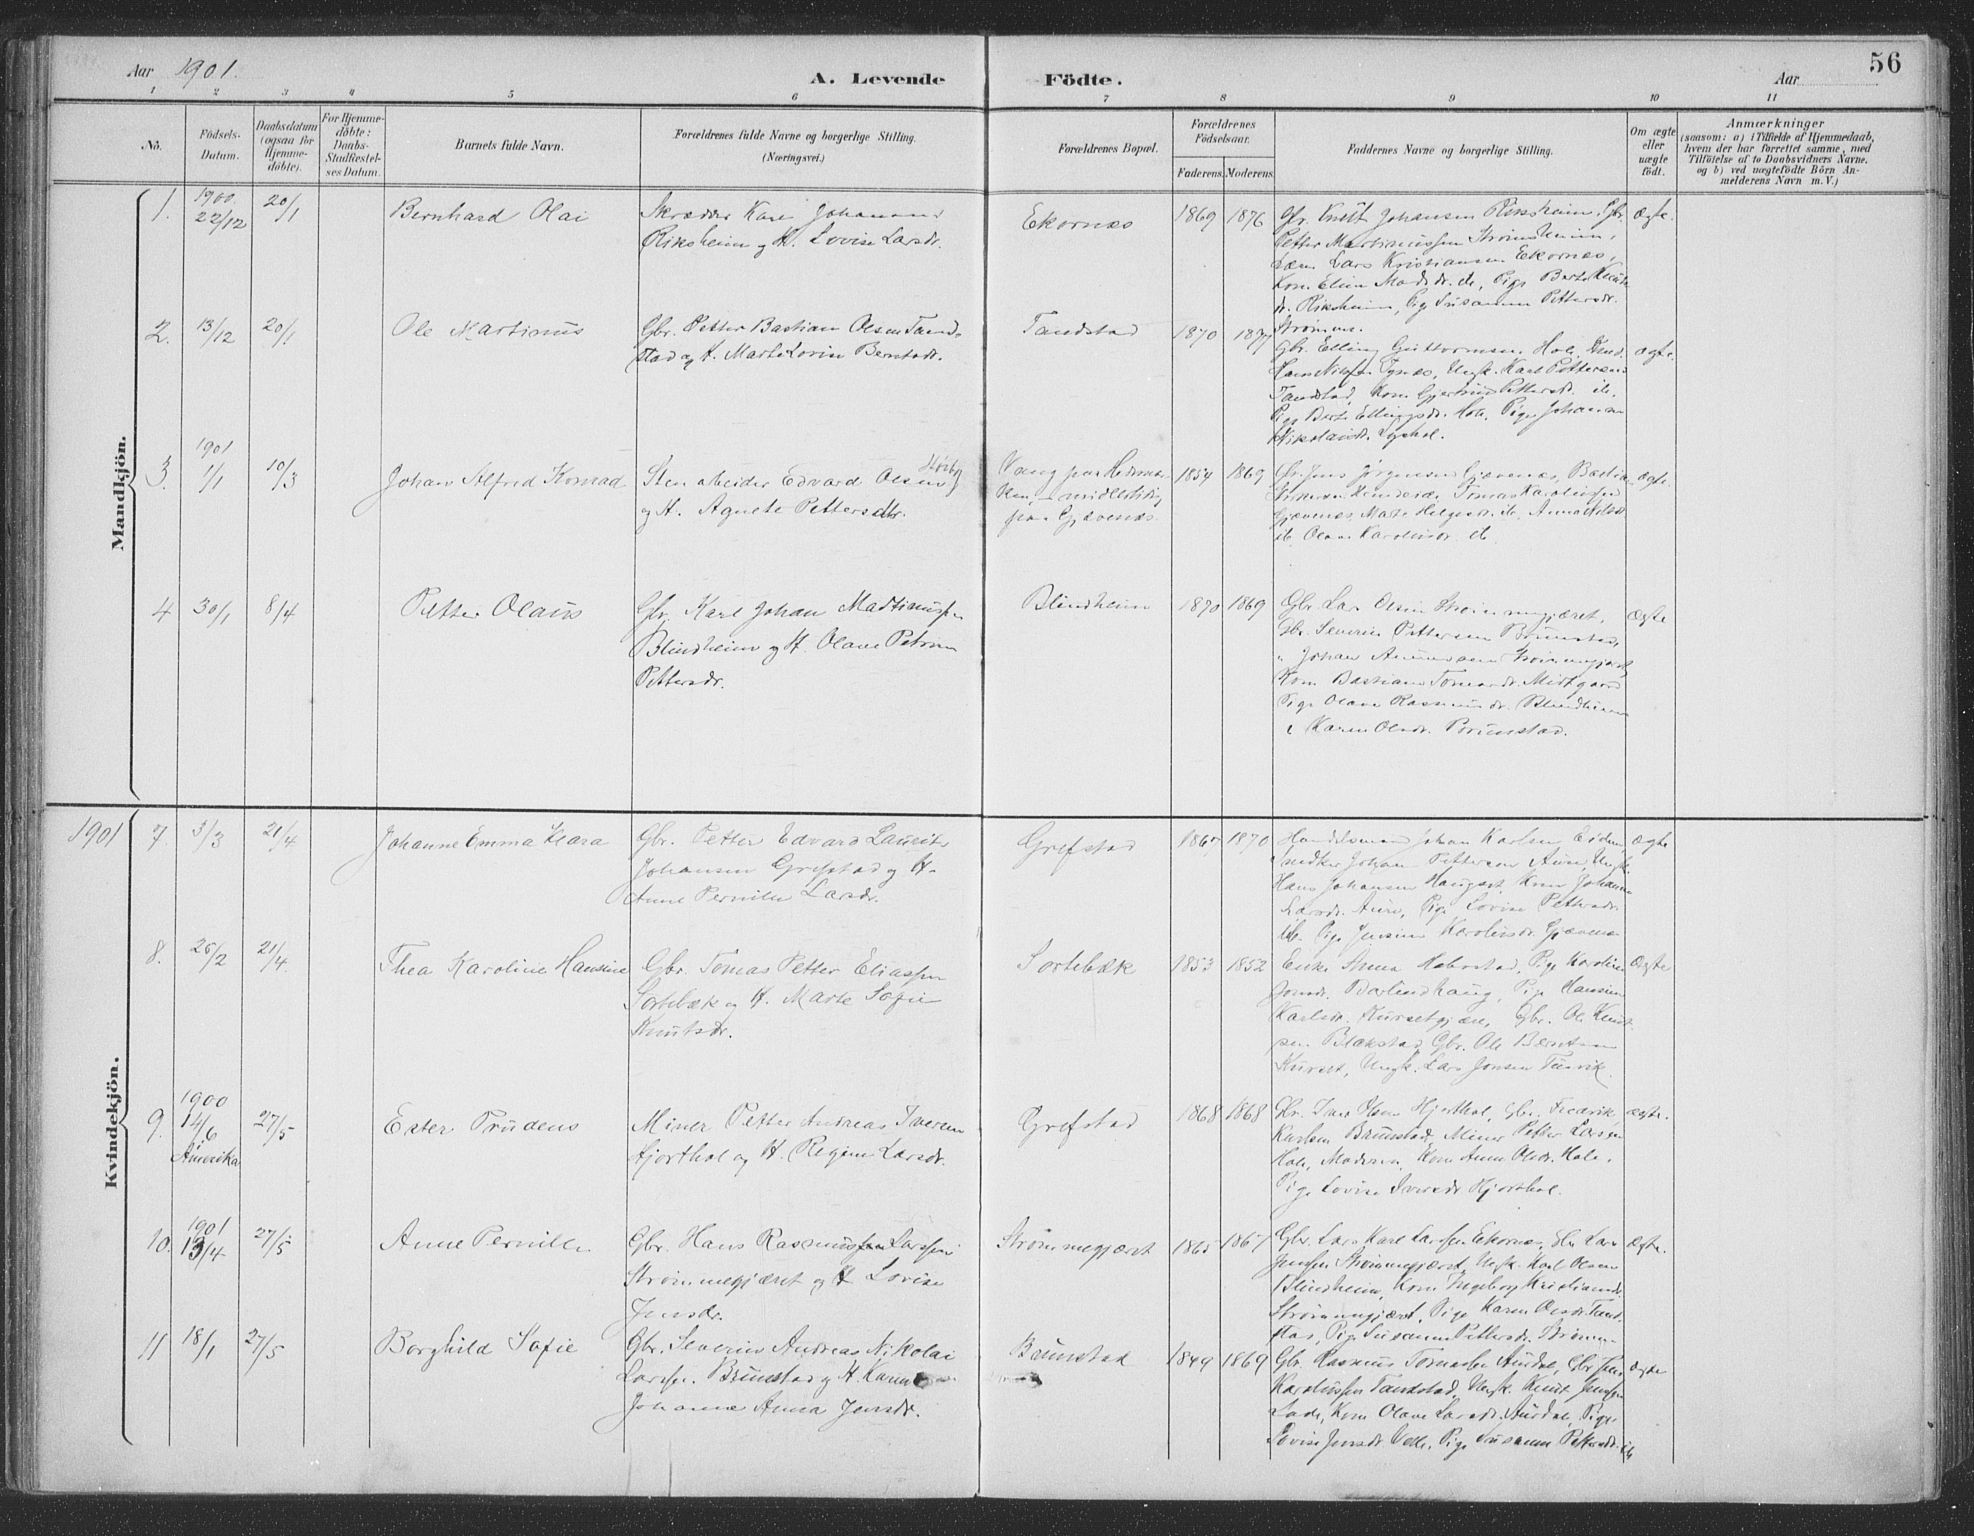 56
Aar 1901.
A. Levende
Födte.
Aar
1 2 3 4 5 6 7 8 9 10 11
No.
Födsels-
Datum.
Daabsdatum
(ogsaa for
Hjemme-
döbte).
For Hjemme-
döbte:
Daabs-
Stadfæstel-
ses Datum.
Barnets fulde Navn.
Forældrenes fulde Navne og borgerlige Stilling.
(Næringsvei.)
Forældrenes Bopæl.
Forældrenes
Födselsaar.
Faderens.
Moderens.
Faddernes Navne og borgerlige Stilling.
Om ægte
eller
uægte
født.
Anmærkninger
(saasom: a) i Tilfælde af Hjemmedaab,
hvem der har forrettet samme, med
Tilföielse af to Daabsvidners Navne.
og b) ved uægtefödte Börn An-
melderens Navn m. V.)
Mandkjön.
1.
1900
22/12
20/1
Bernhard Olai
Skrædder Karl Johannes
Riksheim og H. Lovise Larsdr.
Ekornæs
1869
1876
Gbr. Knut Johansen Riksheim, Gbr.
Petter Martinussen Strømsheim,
Lars Kristiansen Ekornæs,
Kone Eline Madsdr. ib, Pige Berte Knuts
dr. Riksheim, Pig Susanne Pettersdr.
Strømm.
ægte.
2.
13/12
20/1
Ole Martinus
Gbr. Petter Bastian Olsen Tand
stad og H. Marte Lovise Berntsdr.
Tandstad
1870
1877
Gbr. Elling Guttormsen Hole,
Tandstad, Kone Gjertrud Pettersdr. ib,
Pige Berte Ellingsdr. Hole, Pige Johanne
Nikolaidr.
ægte.
3.
1901
1/1
10/3
Johan Alfred Konrad
Stenarbeider Edvard Olsen
og H. Agnete Pettersdtr.
Vang paa Hedemar
ken, midlertidig
paa Gjævenæs
1854
1869
Gbr. Jens Jørgensen Gjævenæs,
Tomas Karolussen
Gjævenæs, Marte Helgesdr. ib,
ib Olave Karolusdr. ib
ægte.
4
30/1
8/4
Petter Olaus
Gbr. Karl Johan Mathiassen
Blindheim og H. Olave Petrine
Pettersdr.
Blindheim
1870
1869
Gbr. Lars Olsen Strømmegjæret,
Gbr. Severin Pettersen Brunstad,
" Johan Amundsen Strømmegjæret
Kone Bastiane Tomasdr. Midtgaard
Pige Olave Rasmusdr. Blindheim
" Karen Olsdr. Brunstad.
ægte
Kvindekjön.
1901
7.
3/3
21/4
Johanne Emma Klara
Gbr. Petter Edvard Laurits
Johansen Grefstad og H.
Anne Pernille Larsdr.
Grefstad
1865
1870
Handelsmand Johan Karlsen Eidem
Snedker Johan Pettersen Aure, Ungk.
Hans Johansen Haugset, Kone Johanne
Larsdr. Aure, Pige Lovise Pettersdr.
ib. Pige Jensine Karolusdr. Gjævenæs
ægte
8.
26/2
21/4.
Thea Karoline Hansine
Gbr. Tomas Petter Eliassen
Sortebæk og H. Marte Sofie
Knutsdr.
Sortebæk
1853
1852
Enke Anna Habostad, Pige Karoline
Jonsdr. Barlindhaug, Pige Hansine
Karlsdr. Kursetgjære, Gbr. Ole Knut
sen Blakstad, Gbr. Ole Berntsen
Kurset, Ungk. Lars Jonsen Tusvik.
ægte
9.
1900
14/6
Amerika
27/5
Ester Prudens
Miner Petter Andreas Iversen
Hjorthol og H. Regine Larsdr.
Grefstad
1868
1868
Gbr. Iver Olsen Hjorthol, Gbr. Fredrik
Karlsen Brunstad, Miner Petter Larsen
Hole, Moderen, Kone Anne Olsdr. Hole,
Pige Lovise Iversdr Hjorthol.
ægte.
10.
1901
13/4
27/5
Anne Pernille
Gbr. Hans Rasmus Larssen
Strømmegjæret og H Lovise
Jensdr.
Strømmegjæret
1865
1867
Gbr. Lars Karl Larssen Ekornæs, Gbr Lars
Jenssen Strømmegjæret, Ungk. Karl Olsen
Blindheim, Kone Ingeborg Kristiansdr.
Strømmegjæret, Pige Karen Olsdr. Tand
stad, Pige Susanne Pettersdr. Strømm-
ægte.
11
18/1
27/5
Borghild Sofie
Gbr. Severin Andreas Nikolai
Larssen Brunstad og H. Karen
Johanne Anna Jensdr.
Brunstad
1849
1869
Gbr. Rasmus Tomassen Aurdal, Gbr Jens
Karolussen Tandstad, Ungk. Knut Jenssen
Lade, Kone Olave Larsdr. Aurdal, Pige
Lovise Jensdr Velle, Pige Susanne Pettersdr ib
ægte